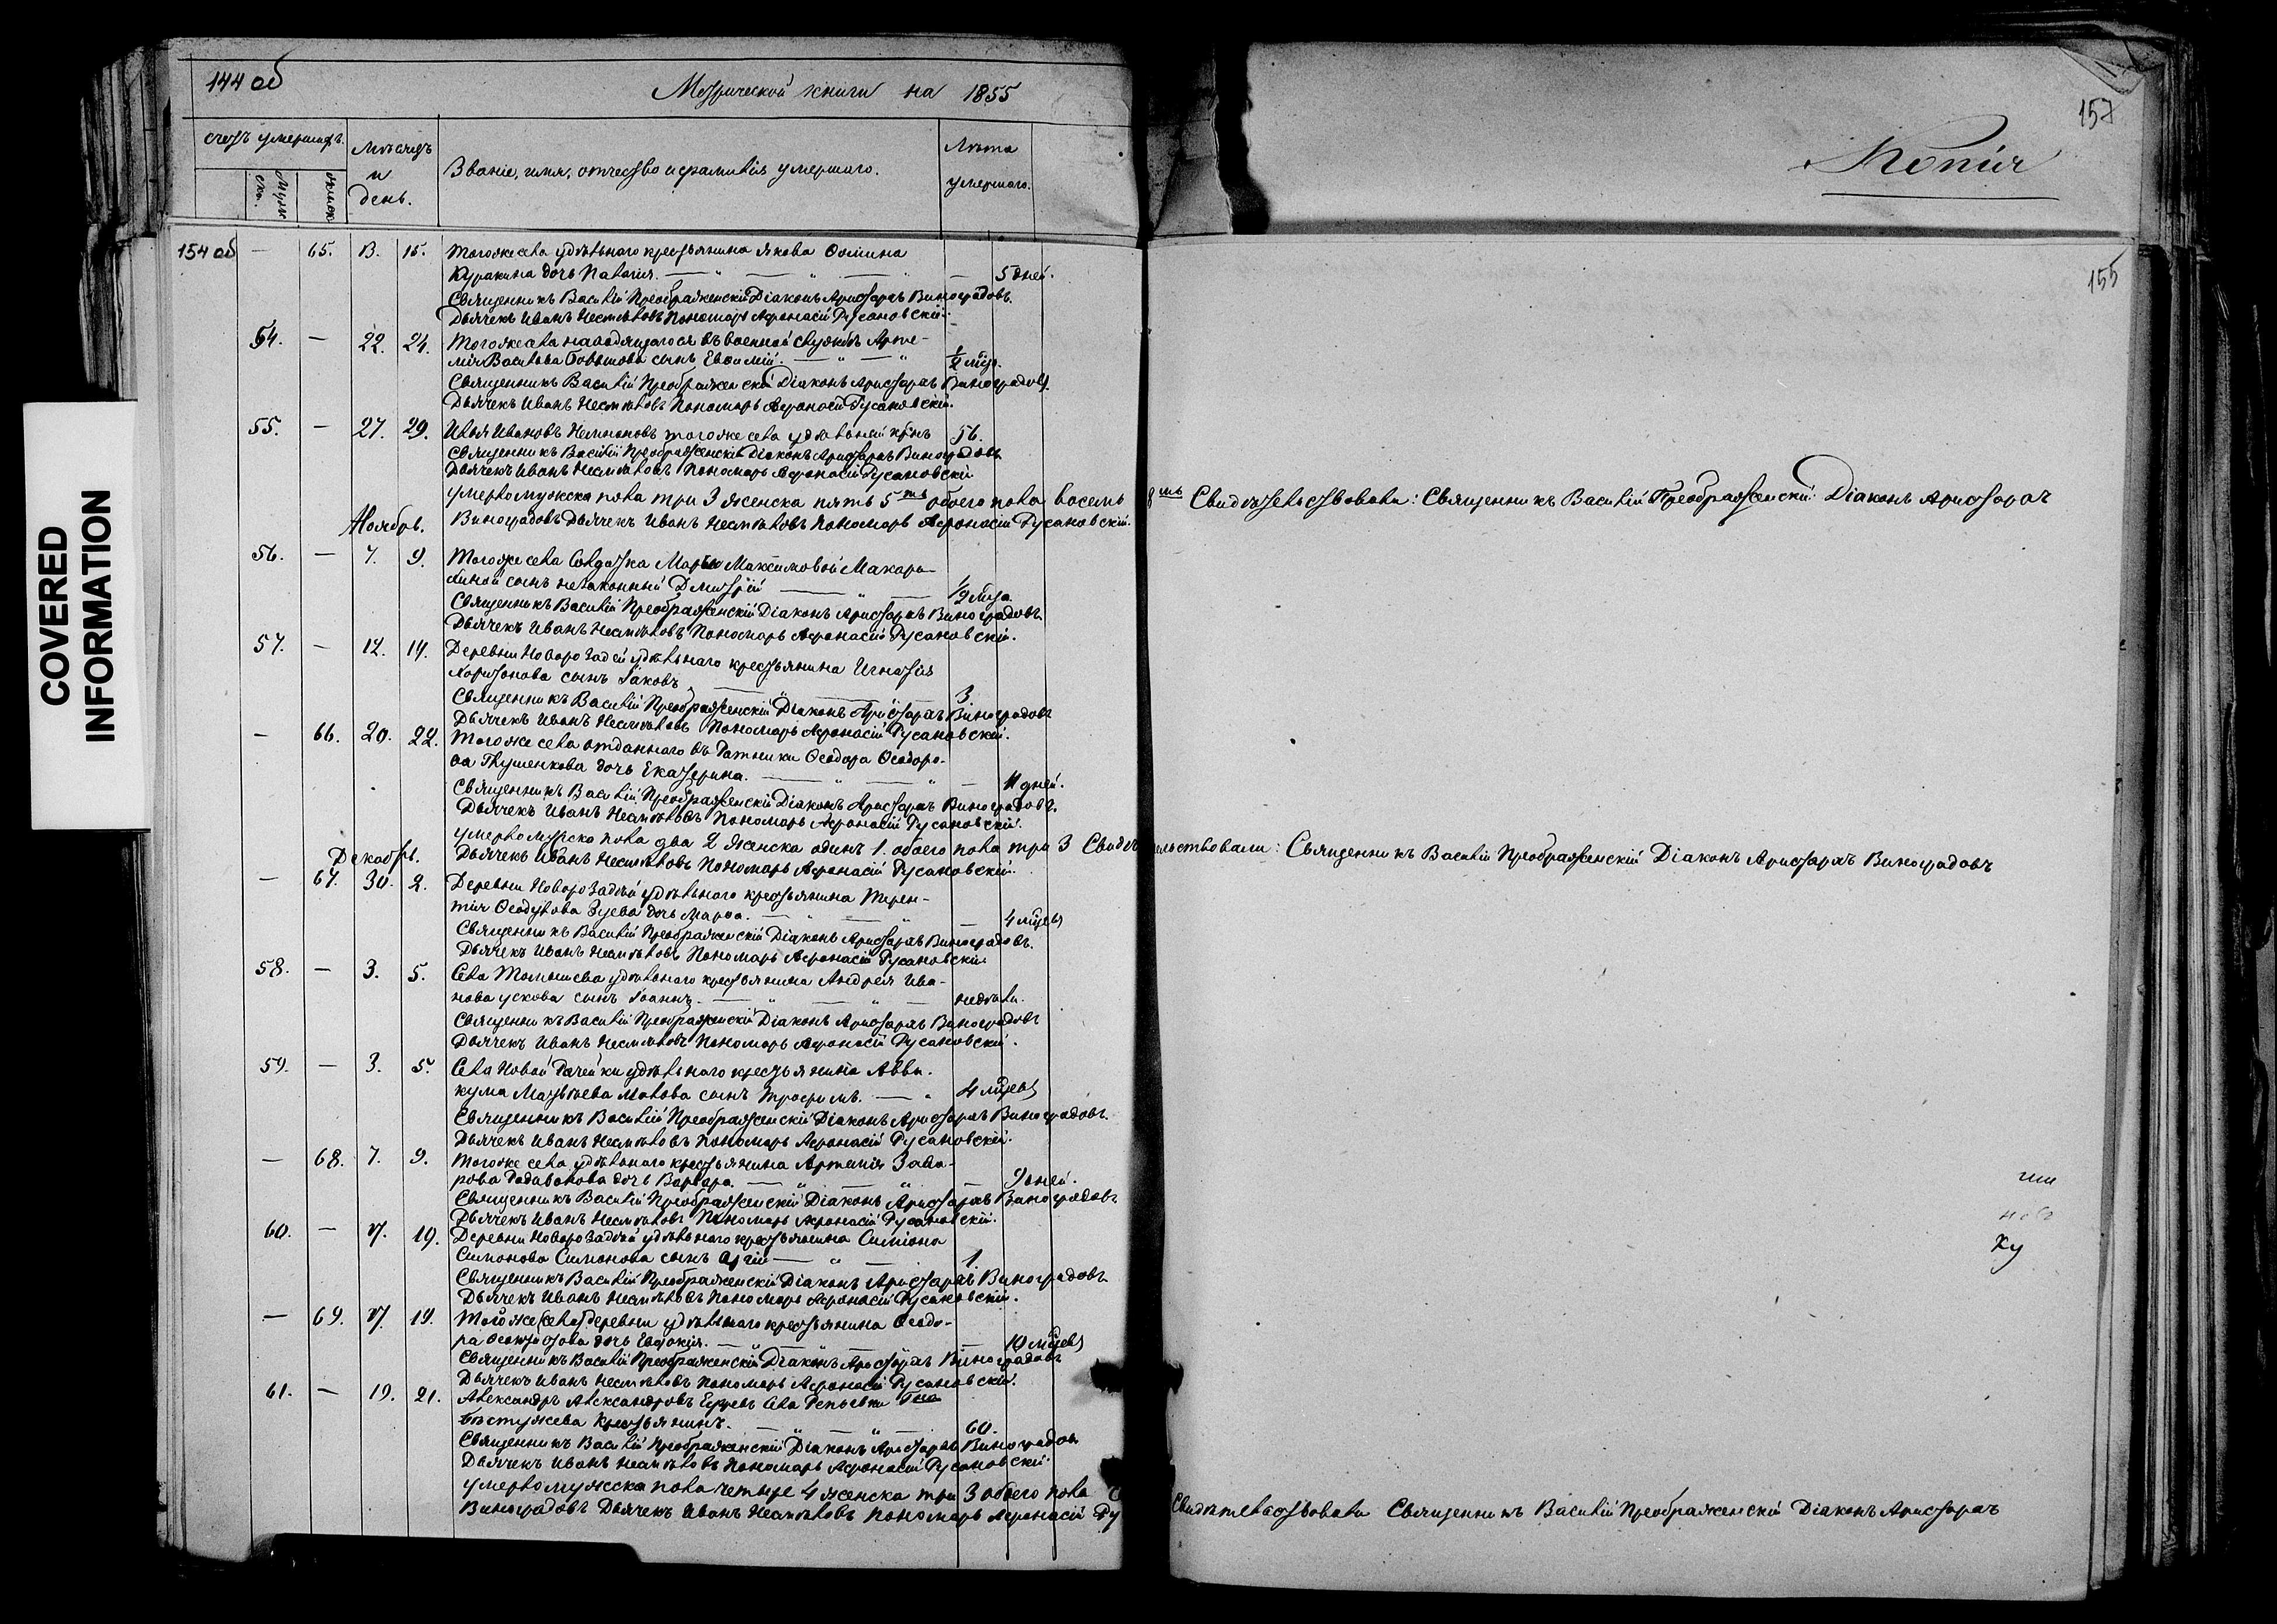 144 об
Метрической книги на 1855
157
Копія
счетъ умершихъ.
Мужеска.
женска
Мѣсяцъ
и
день.
Званіе, имя, отчество и фамилія умершаго.
Лѣта
умершаго.
COVERED
INFORMATION
155
154 об — 65. 13. 15. Тогоже села удѣльнаго крестьянина Якова Ѳомина
Куракина дочь Пелагія. — 5 дней.
Священникъ Василій Преображенскій Діаконъ Аристархъ Виноградовъ.
Дьячекъ Иванъ Несмѣловъ Пономарь Афонасій Русановскій.
54. — 22. 24. Тогоже села находящагося въ военной службѣ Арте-
мія Васильва сынъ Евѳимій. — 1/2 мѣс.
Священникъ Василій Преображенскій Діаконъ Аристархъ Виноградовъ.
Дьячекъ Иванъ Несмѣловъ Пономарь Афонасій Русановскій.
55. — 27. 29. Илья Ивановъ тогоже села удѣльный крнъ 56.
Священникъ Василій Преображенскій Діаконъ Аристархъ Виноградовъ
Дьячекъ Иванъ Несмѣловъ Пономарь Афонасій Русановскій
умерло мужска пола три 3 женска пять 5ть обоего пола восемь 8мь Свидѣтельствовали: Священникъ Василій Преображенскій: Діаконъ Аристархъ
Ноябрь. Виноградовъ Дьячекъ Иванъ Несмѣловъ Пономарь Афонасій Русановскій.
56. — 7. 9. Тогоже села Солдатка Марьи Максимовой Макаро-
сынъ незаконный Дмитрій — 1/2 мѣся.
Священникъ Василій Преображенскій Діаконъ Аристархъ Виноградовъ
Дьячекъ Иванъ Несмѣловъ Пономарь Афонасій Русановскій.
57. — 12. 14. Деревни удѣльнаго крестьянина Игнатія
Харитонова сынъ Іаковъ — 3
Священникъ Василій Преображенскій Діаконъ Аристархъ Виноградовъ
Дьячекъ Иванъ Несмѣловъ Пономарь Афонасій Русановскій.
— 66. 20. 22. Тогоже села отданнаго въ Ратники Ѳеодора Ѳеодоро-
ва Глушенкова дочь Екатерина. — 11 дней.
Священникъ Василій Преображенскій Діаконъ Аристархъ Виноградовъ.
Дьячекъ Иванъ Несмѣловъ Пономарь Афонасій Русановскій.
умерло мужско пола два 2 женска одинъ 1. обоего пола три 3 Свидѣтельствовали: Священникъ Василій Преображенскій Діаконъ Аристархъ Виноградовъ
Декабрь. Дьячекъ Иванъ Несмѣловъ Пономарь Афонасій Русановскій.
— 67. 30. 2. Деревни удѣльнаго крестьянина Терен-
тія Ѳеодулова Зуева дочь Марѳа. — 4 мѣсецъ
Священникъ Василій Преображенскій Діаконъ Аристархъ Виноградовъ.
Дьячекъ Иванъ Несмѣловъ Пономарь Афонасій Русановскій
58. — 3. 5. Села Томышева удѣльнаго крестьянина Андрея Ива-
нова ускова сынъ Іоаннъ. — недѣли.
Священникъ Василій Преображенскій Діаконъ Аристархъ Виноградовъ
Дьячекъ Иванъ Несмѣловъ Пономарь Афонасій Русановскій.
59. — 3. 5. Села Новой Рачейки удѣльнаго крестьянина Авва-
кума Матвѣева сынъ Трофимъ. — 4 мѣсецъ
Священникъ Василій Преображенскій Діаконъ Аристархъ Виноградовъ.
Дьячекъ Иванъ Несмѣловъ Пономарь Афонасій Русановскій.
— 68. 7. 9. Тогоже села удѣльнаго крестьянина Артемія
дочь Варвара. — 9 дней.
Священникъ Василій Преображенскій Діаконъ Аристархъ Виноградовъ
Дьячекъ Иванъ Несмѣловъ Пономарь Афонасій Русановскій.
60. — 17. 19. Деревни удѣльнаго крестьянина Симіона
Симонова Симонова сынъ — 1.
Священникъ Василій Преображенскій Діаконъ Аристархъ Виноградовъ
Дьячекъ Иванъ Несмѣловъ Пономарь Афонасій Русановскій.
— 69. 17. 19. Тойже деревни удѣльнаго крестьянина Ѳеодо-
ра дочь Евдокія. — 10 мѣсецъ
Священникъ Василій Преображенскій Діаконъ Аристархъ Виноградовъ
Дьячекъ Иванъ Несмѣловъ Пономарь Афонасій Русановскій.
61. — 19. 21. Александръ Александровъ Села Репьевки Гна
Бестужева крестьянинъ. — 60.
Священникъ Василій Преображенскій Діаконъ Аристархъ Виноградовъ
Дьячекъ Иванъ Несмѣловъ Пономарь Афонасій Русановскій.
умерло мужеска пола четыре 4 женска три 3 обоего пола Свидѣтельствовали Священникъ Василій Преображенскій Діаконъ Аристархъ
Виноградовъ Дьячекъ Иванъ Несмѣловъ Пономарь Афонасій Ру